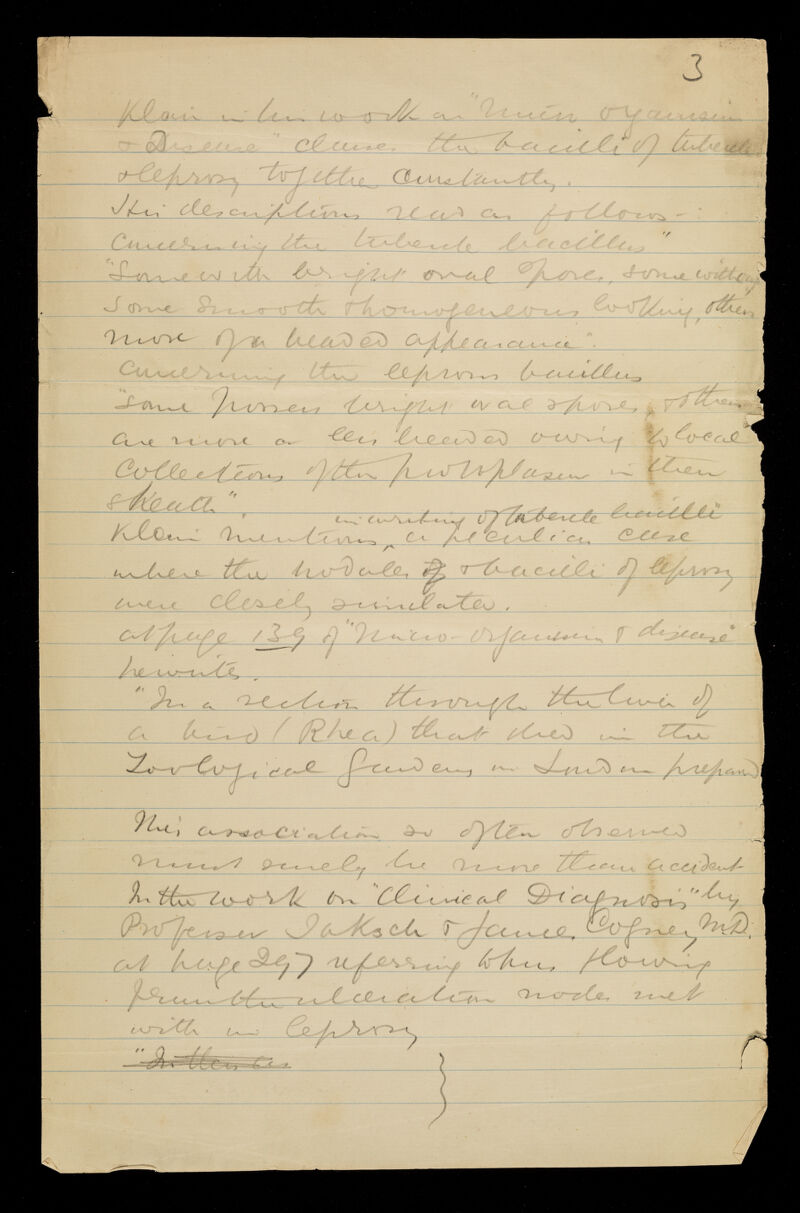 3
Klein in his work on "Micro organism
& Disease" classes the bacilli of tubercle
& leprosy together constantly.
His descriptions read as follows -:
Concerning the tubercle bacillus"
"Some with bright oval spores, some without
some smooth & homogeneous looking, others
more of a beaded appearance".
Concerning the leprous bacillus
"some possess bright oval spores, & others
are more or less beaded owing to local
Collections of the protoplasm in their
sheath".
in writing of tubercle bacilli
Klein mentions, a peculiar case
where the nodules of & bacilli of leprosy
were closely simulated.
at page 139 of "Micro-organism & disease"
he writes.
"In a section through the liver of
a bird (Rhea) that died in the
Zoological Gardens in London prepared
This association so often observed
must surely be more than accident
In the work on "Clinical Diagnosis" by
Professor Jaksch & James Cagney, M.D.
at page 297 referring to pus flowing
from the ulceration nodes met
with in leprosy
"In these